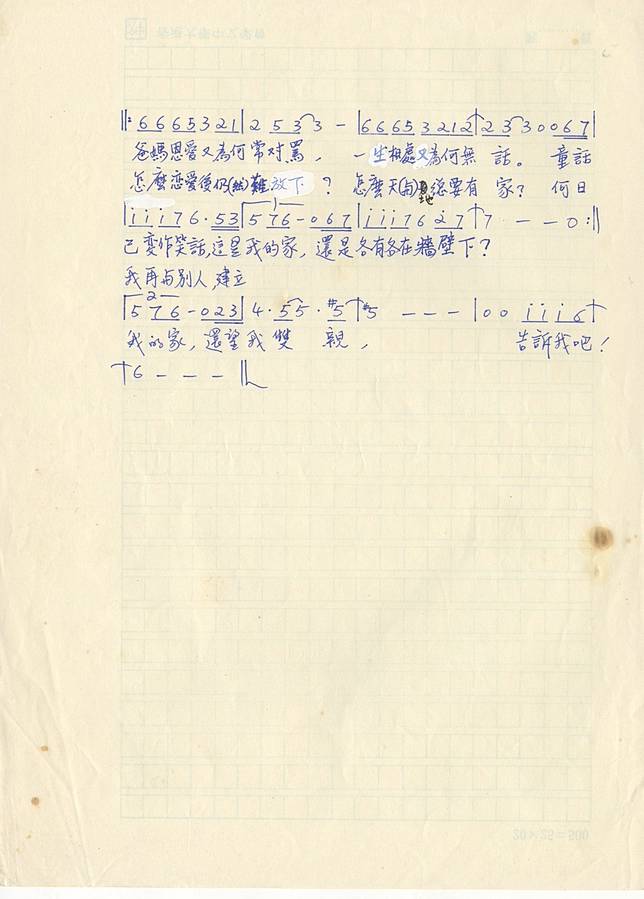 ‖: 6 6 6 5 3 2 1 | 2 5 3 3 – | 6 6 6 5 3 2 1 2 | 2 3 3 0 0 6 7 |
爸媽恩愛又為何常对罵， 一生相處又為何無話。 童話
怎麼恋愛後仍(然)難放下？ 怎麼天(与)地總要有家？ 何日
| i i i 7 6 · 5 3 | 5 7 6 – 0 6 7 | i i i 7 6 2 7 | 7 – – 0 :‖
已變作笑話，這是我的家，還是各有各在牆壁下？
我再与別人建立
2
5 7 6 – 0 2 3 | 4 · 5 5 · #5 | #5 – – – | 0 0 i i i 6 |
我的家，還望我雙親， 告訴我吧！
6 – – – ‖
20×25=500